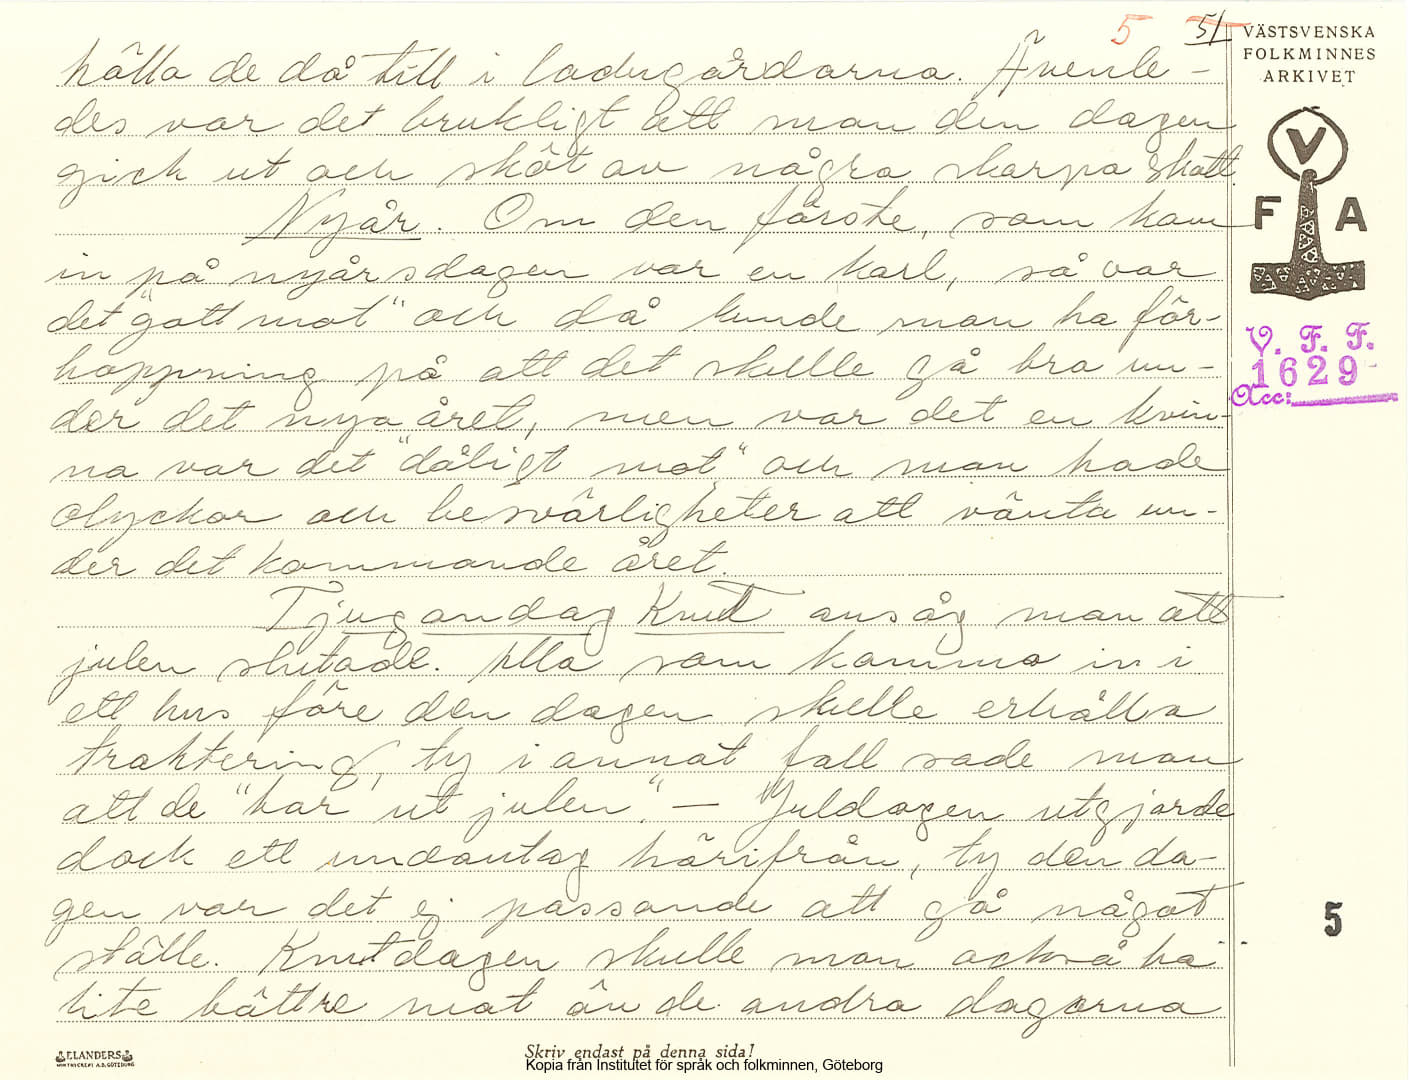 5 51
VÄSTSVENSKA
FOLKMINNES
ARKIVET
V
F A
V. F. F.
1629
Acc:
hålla de då till i ladugårdarna. Ävenle-
des var det brukligt att man den dagen
gick ut och sköt av några skarpa skott.
Nyår. Om den förste, som kom
in på nyårsdagen var en karl, så var
det "gott mot" och då kunde man ha för-
hoppning på att det skulle gå bra un-
der det nya året, men var det en kvin-
na var det "dåligt mot" och man hade
olyckor och besvärligheter att vänta un-
der det kommande året.
Tjugondag Knut ansåg man att
julen slutade. Alla som kommo in i
ett hus före den dagen skulle erhålla
traktering, ty i annat fall sade man
att de "bar ut julen". — Juldagen utgjorde
dock ett undantag härifrån, ty den da-
gen var det ej passande att gå något
ställe. Knutdagen skulle man också ha
lite bättre mat än de andra dagarna
5
ELANDERS
Skriv endast på denna sida!
Kopia från Institutet för språk och folkminnen, Göteborg